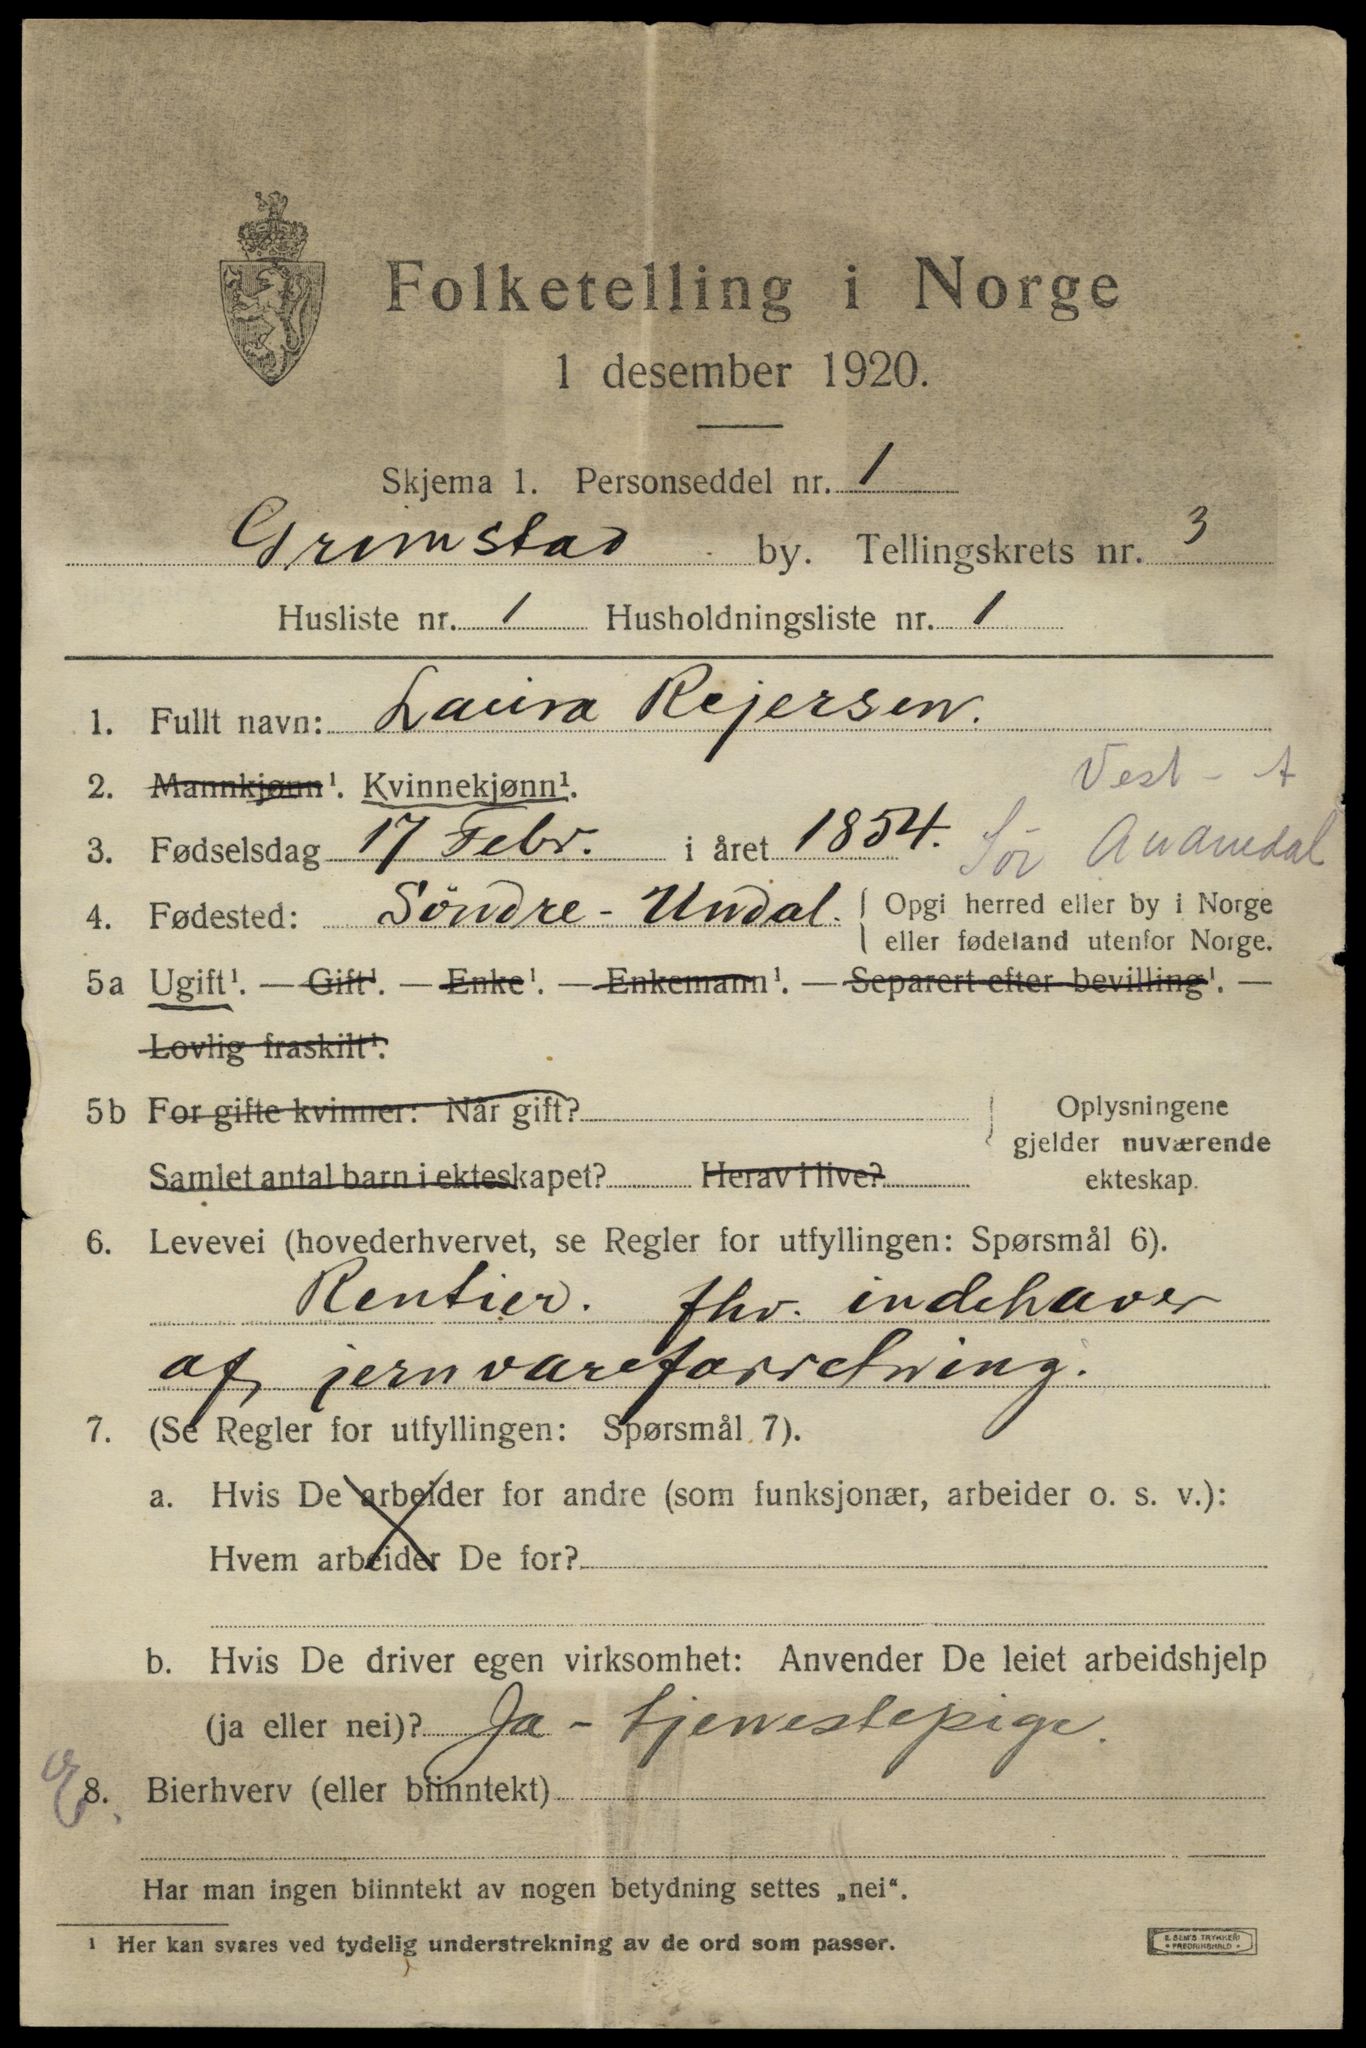 Folketelling i Norge
1 desember 1920.
Skjema 1. Personseddel nr. 1
Grimstad by. Tellingskrets nr. 3
Husliste nr. 1 Husholdningsliste nr. 1
1. Fullt navn: Laura Rejersen.
2. Mannkjønn¹. Kvinnekjønn¹.
Vest - A
3. Fødselsdag 17 Febr. i året 1854.
Sör Audnedal
4. Fødested: Söndre - Undal. Opgi herred eller by i Norge
eller fødeland utenfor Norge.
5a Ugift¹. — Gift¹. — Enke¹. — Enkemann¹. — Separert efter bevilling¹. —
Lovlig fraskilt¹.
5b For gifte kvinner: Når gift?
Samlet antal barn i ekteskapet? Herav i live?
Oplysningene
gjelder nuværende
ekteskap.
6. Levevei (hovederhvervet, se Regler for utfyllingen: Spørsmål 6).
Rentier. fhv. indehaver
af jernvareforretning.
7. (Se Regler for utfyllingen: Spørsmål 7).
a. Hvis De arbeider for andre (som funksjonær, arbeider o. s. v.):
Hvem arbeider De for?
b. Hvis De driver egen virksomhet: Anvender De leiet arbeidshjelp
(ja eller nei)? Ja - tjenestepige.
8. Bierhverv (eller biinntekt)
E.
Har man ingen biinntekt av nogen betydning settes „nei“.
¹ Her kan svares ved tydelig understrekning av de ord som passer.
E. SEM'S TRYKKERI
• FREDRIKSHALD •